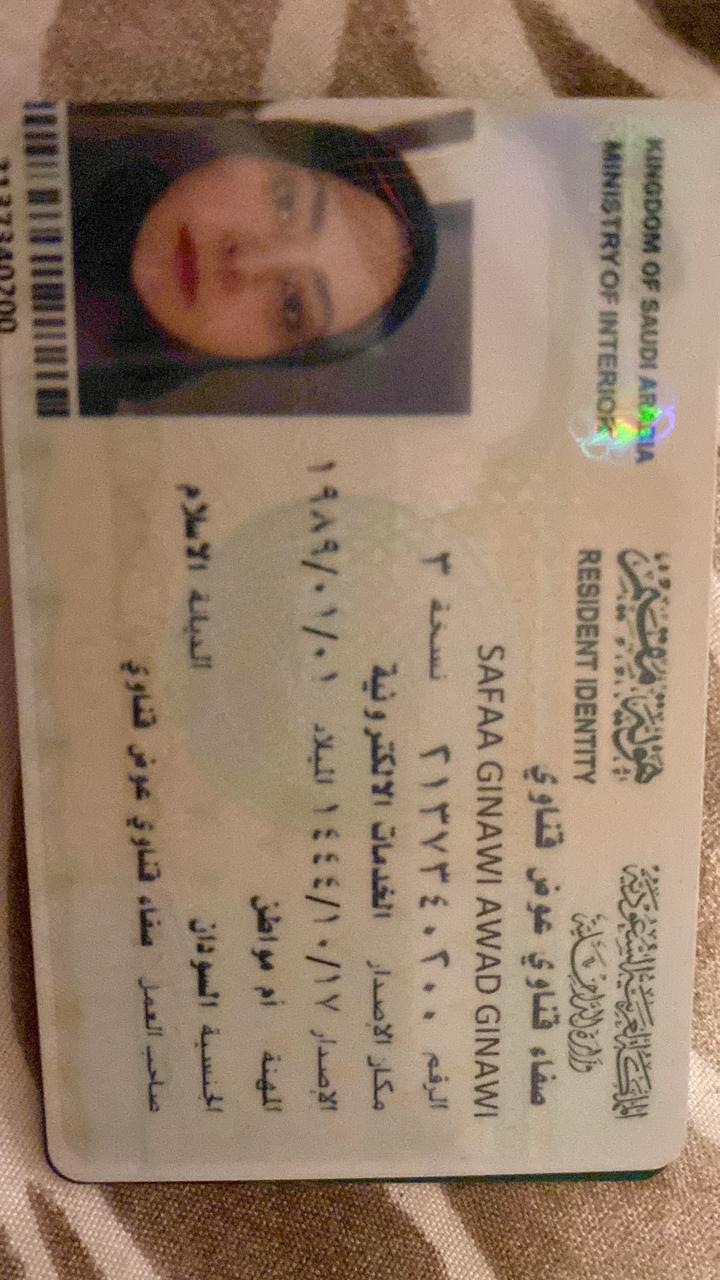 المملكة العربية السعودية
وزارة الداخلية
هوية مقيم
RESIDENT IDENTITY
KINGDOM OF SAUDI ARABIA
MINISTRY OF INTERIOR
صفاء قناوي عوض قناوي
SAFAA GINAWI AWAD GINAWI
الرقم ٢١٣٧٣٤٠٢٠٠ نسخة ٣
مكان الاصدار الخدمات الالكترونية
الاصدار ١٤٤٤/١٠/١٧ الميلاد ١٩٨٩/٠١/٠١
المهنة أم مواطن
الجنسية السودان الديانة الاسلام
صاحب العمل صفاء قناوي عوض قناوي